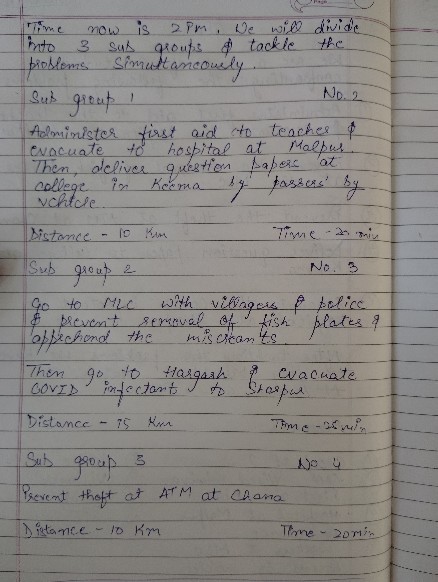 Time now is 2 Pm. We will divide
into 3 sub groups & tackle the
problems simultaneously.
Sub group 1 No. 2
Administer first aid to teacher &
evacuate to hospital at Malpur.
Then, deliver question papers at
college in Keema by passers' by
vehicle.
Distance - 10 Km Time - 20 min
Sub group 2 No. 3
Go to MLC with villagers & police
& prevent removal of fish plates &
apprehend the miscreants
Then go to Hargarh & evacuate
COVID infectant to
Distance - 15 Km Time - 25 min
Sub group 3 No 4
Prevent theft at ATM at Chana
Distance - 10 Km Time - 20 min